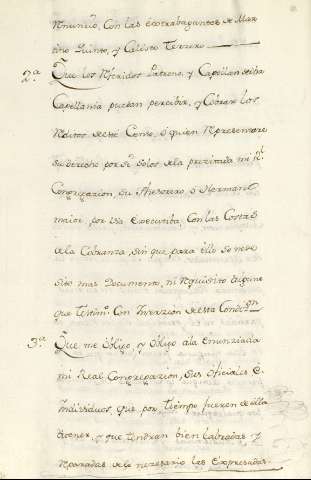 Renuncio, con las extrabagantes de Mar-
tino Quinto, y Calisto Tercero
2.a Que los Referidos Patrono, y Capellan de dha
Capellania puedan percibir, y Cobrar los
Reditos de este Censo, o quien Representare
su derecho por si solos, de la precitada mi Rl
Congregazion, su Thesorero, o Hermano
maior por via Executiba, con las Costas
de la Cobranza, sin que para ello se nece-
site mas Documento, ni Requisito alguno
que Testimo. Con Inserzion de esta Condizon
3.a Que me obligo, y obligo a la enunziada
mi Real Congregazion, sus oficiales e
Individuos, que por tiempo fueren de ella
a tener, y que tendran bien labradas y
Reparadas de lo nezesario las Expresadas